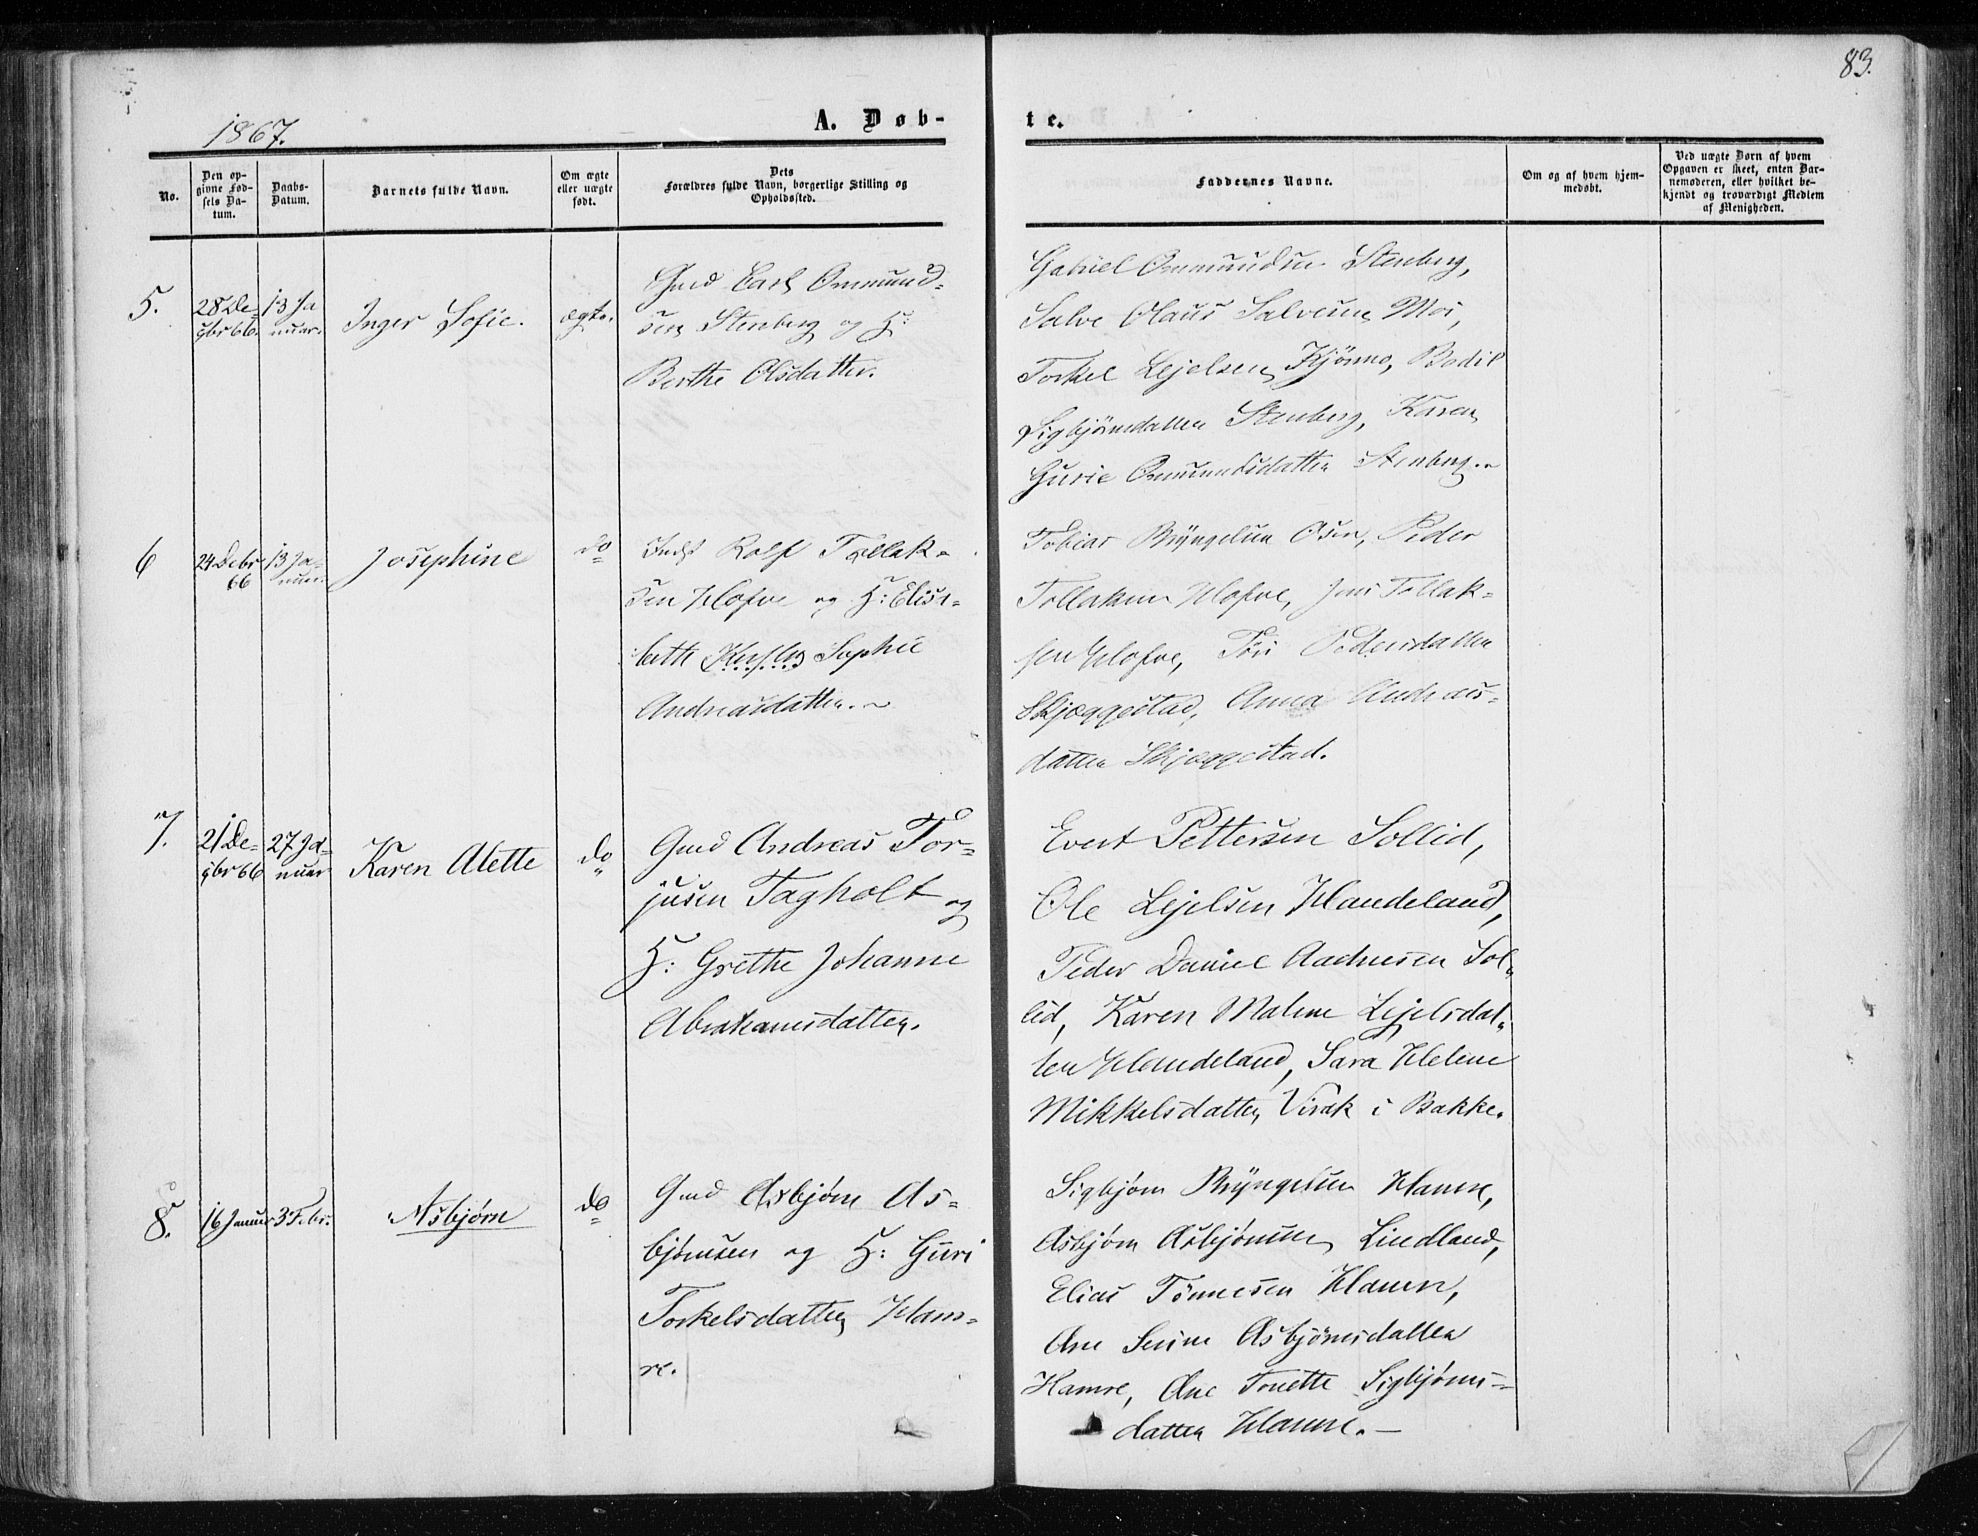 83.
1867.
A. Døb-
te.
No.
Den op-
givne Fød-
sels Da-
tum.
Daabs-
Datum.
Barnets fulde Navn.
Om ægte
eller uægte
født.
Dets
Forældres fulde Navn, borgerlige Stilling og
Opholdssted.
Faddernes Navne.
Om og af hvem hjem-
medøbt.
Ved uægte Børn af hvem
Opgaven er skeet, enten Bar-
nemoderen, eller hvilket be-
kjendt og troværdigt Medlem
af Menigheden.
5.
28 De-
cbr 66.
13 Ja
nuar.
Inger Sofie.
ægte.
Gmd Carl Ommund-
sen Stenberg og H:
Berthe Olsdatter.
Gabriel Ommundsen Stenberg,
Salve Olaus Salvesen Moi,
Torkel Lejelsen, Bodil
Sigbjørnsdatter Stenberg, Karen
Gurie Ommundsdatter Stenberg.
6
24 Decbr
66
13 Ja-
nuar.
Josephine
do
Indst Rolf Tollak-
sen Hofve og H: Elisa-
beth Sophie
Andreasdatter.
Tobias Bryngelsen Osen, Peder
Tollaksen Hofve, Jens Tollak-
sen Hofve, Pedersdatter
Skjæggestad, Anna Andreas-
datter Skjæggestad.
7.
21 De-
cbr 66
27 Ja-
nuar
Karen Alette
do
Gmd Andreas Tor-
jusen Tagholt og
H: Grethe Johanne
Abrahamsdatter.
Evert Pettersen Sollid,
Ole Lejelsen Haudeland,
Peder Daniel Aadnesen Sol-
lid, Karen Malene Lejelsdat-
ter Haudeland, Sara Helene
Mikkelsdatter Virak i Bakke.
8.
16 Januar
3 Febr.
Asbjørn
do
Gmd Asbjørn As-
bjørnsen og H: Guri
Torkelsdatter Ham-
re.
Sigbjørn Bryngelsen Hamre,
Asbjørn Asbjørnsen Lindland,
Elias Tønnesen Hamre,
Ane Serine Asbjørnsdatter
Hamre, Ane Tonette Sigbjørns-
datter Hamre.